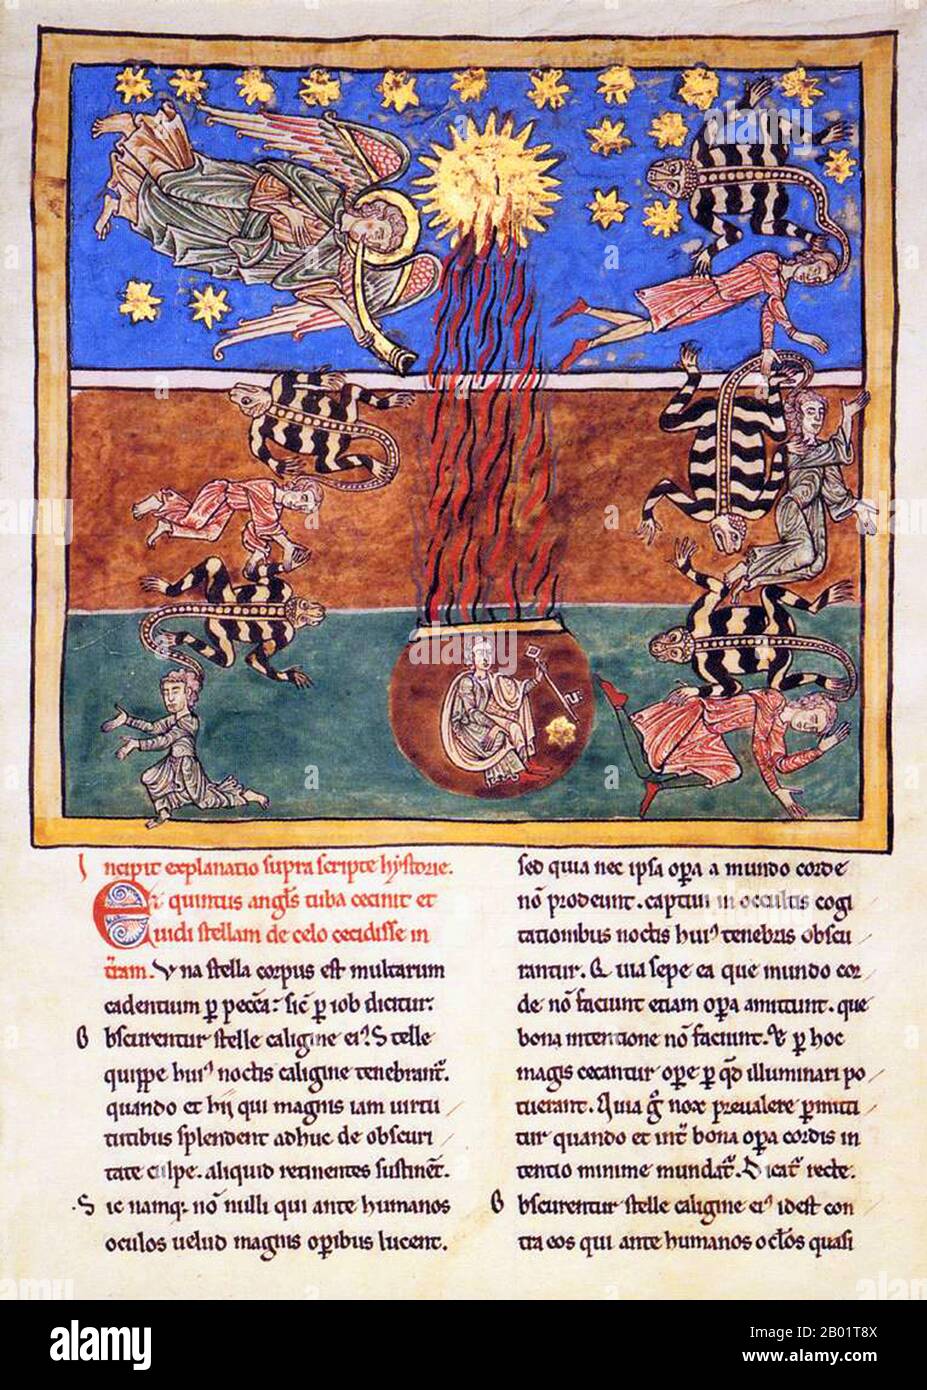 Incipit explanatio supra scripte hystorie.
Et quintus angl's tuba cecinit et
uidi stellam de celo cecidisse in
t̄ram. Una stella corpus est multarum
cadentium p̱ pecc̄a. sic̄ p̱ iob dicitur.
Obscurentur stelle caligine ei'. Stelle
quippe hui' noctis caligine tenebrant̄.
quando et hij qui magnis iam uirtu
tutibus splendent adhuc de obscuri
tate culpe. aliquid retinentes sustinet̄.
Sic namq; nō nulli qui ante humanos
oculos uelud magnis op̱ibus lucent.
sed quia nec ipsa op̱a a mundo corde
nō prodeunt. captiui in occultis cogi
tationibus noctis hui' tenebris obscu
rantur. Et uia sepe ea que mundo cor
de nō faciunt etiam op̱a amittunt. que
bona intentione nō faciunt. Et p̱ hoc
magis cecantur ope p̱ qd̄ illuminari po
tuerant. Quia g° nox preualere p̱mitti
tur quando et int̄ bona op̱a cordis in
tentio minime mundat̄. Dicat̄ recte.
Obscurentur stelle caligine ei' idest con
tra eos qui ante humanos oclōs quasi
alamy
Image ID: 2B01T8X
www.alamy.com